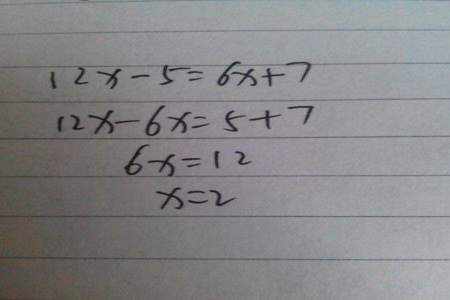 12x-5=6x+7
12x-6x=5+7
6x=12
x=2